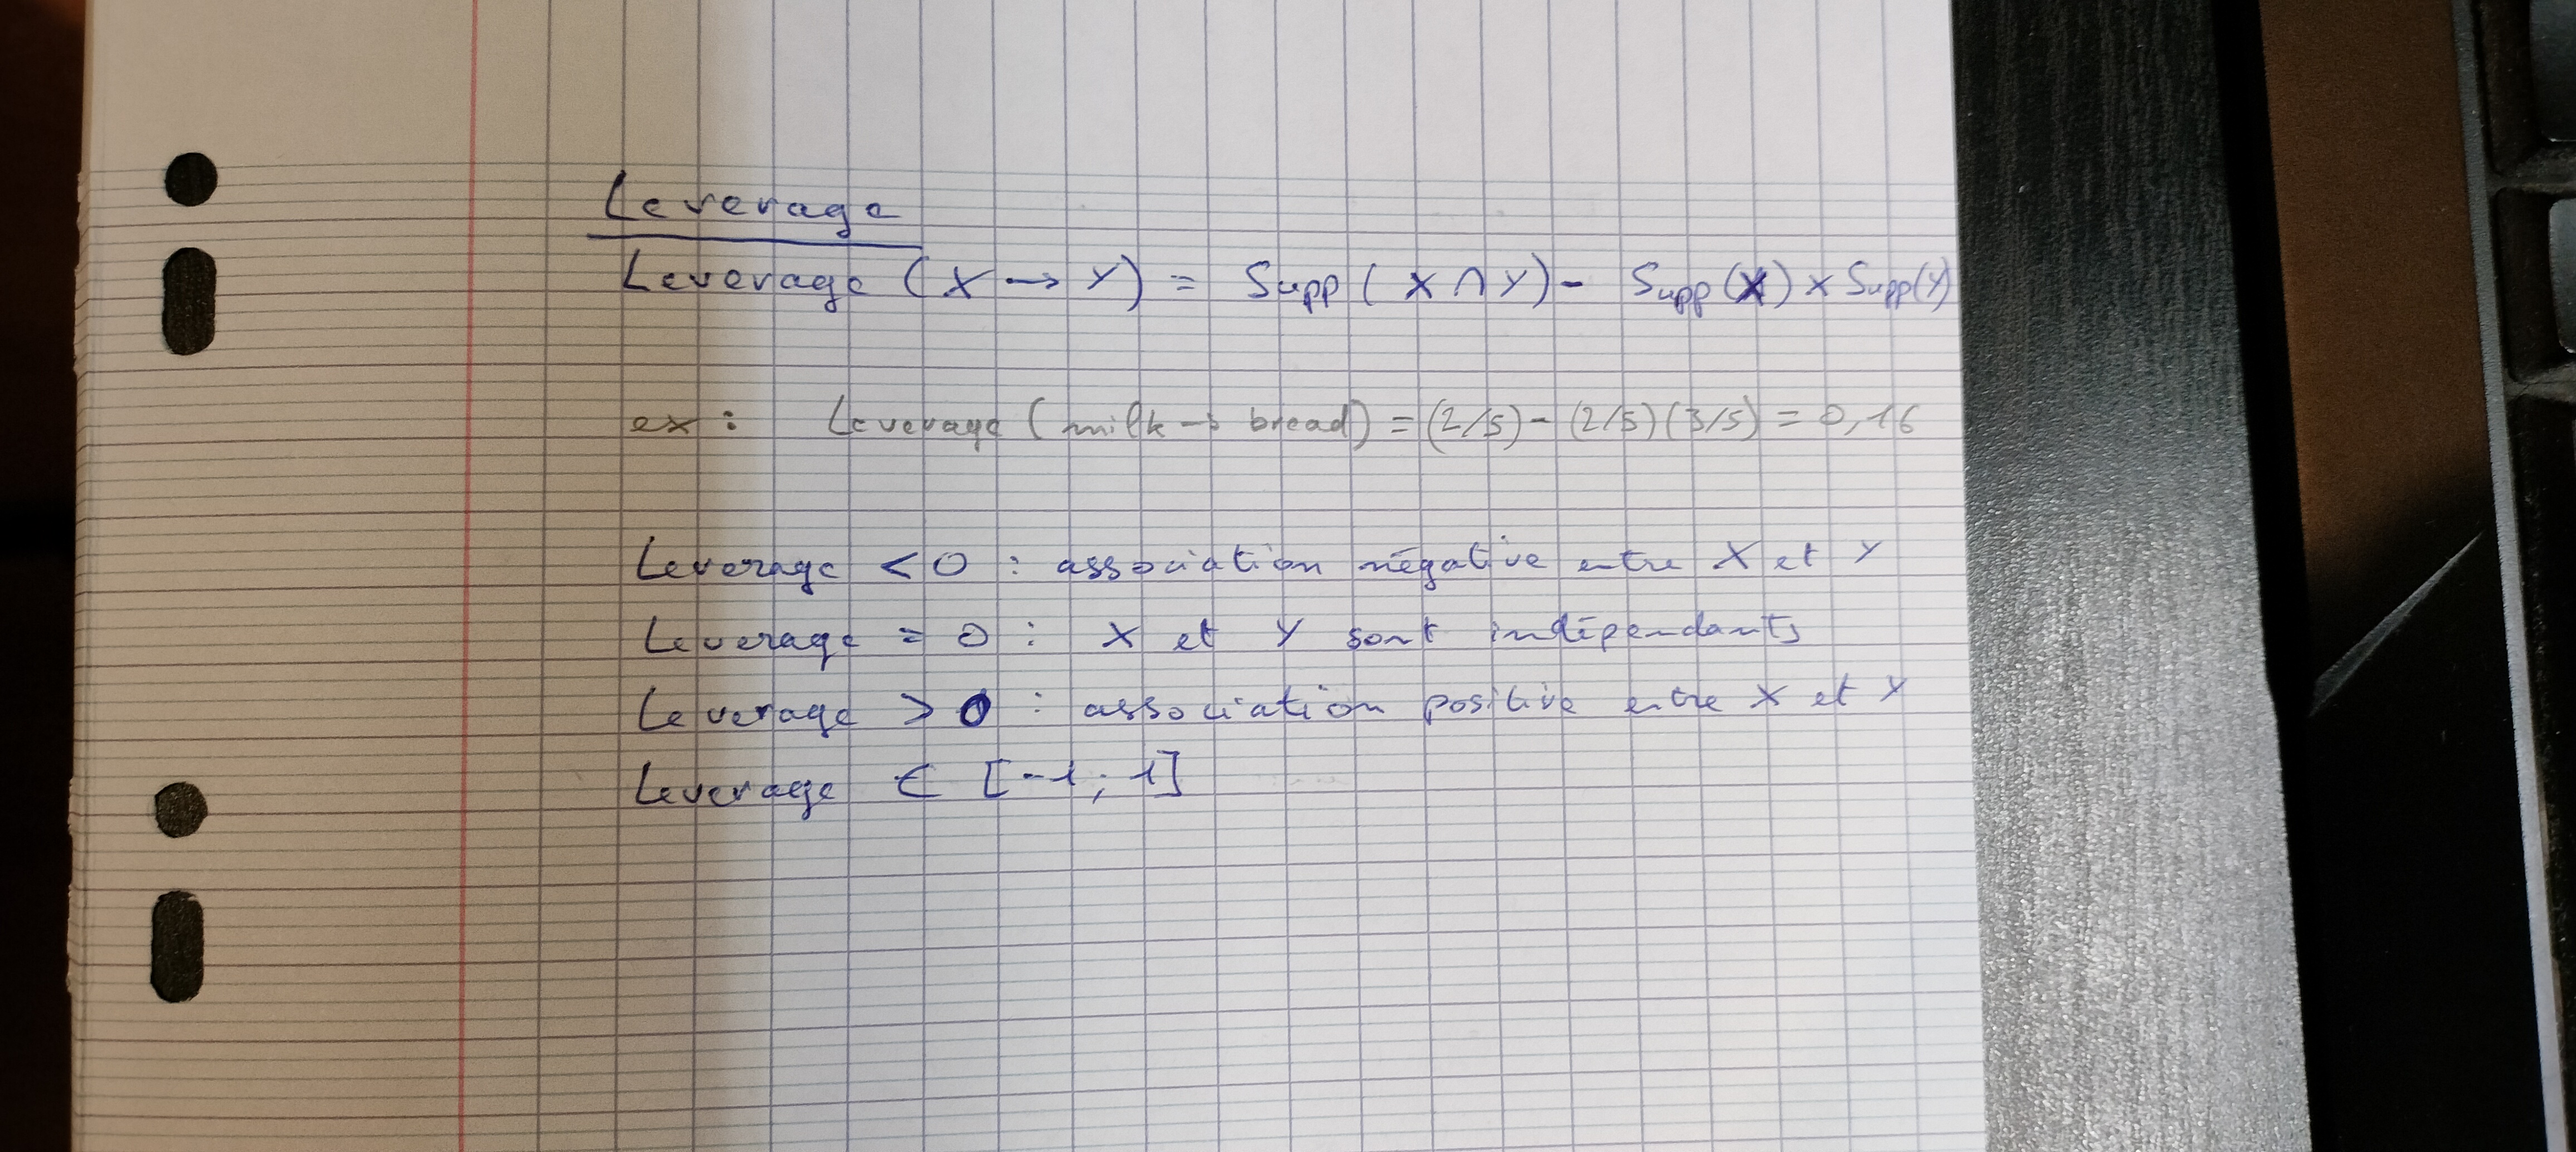 Leverage
Leverage (X → Y) = Supp (X ∩ Y) - Supp(X) × Supp(Y)
ex : Leverage (milk → bread) = (2/5) - (2/5)(3/5) = 0,16
Leverage < 0 : association négative entre X et Y
Leverage = 0 : X et Y sont indépendants
Leverage > 0 : association positive entre X et Y
Leverage ∈ [-1 ; 1]